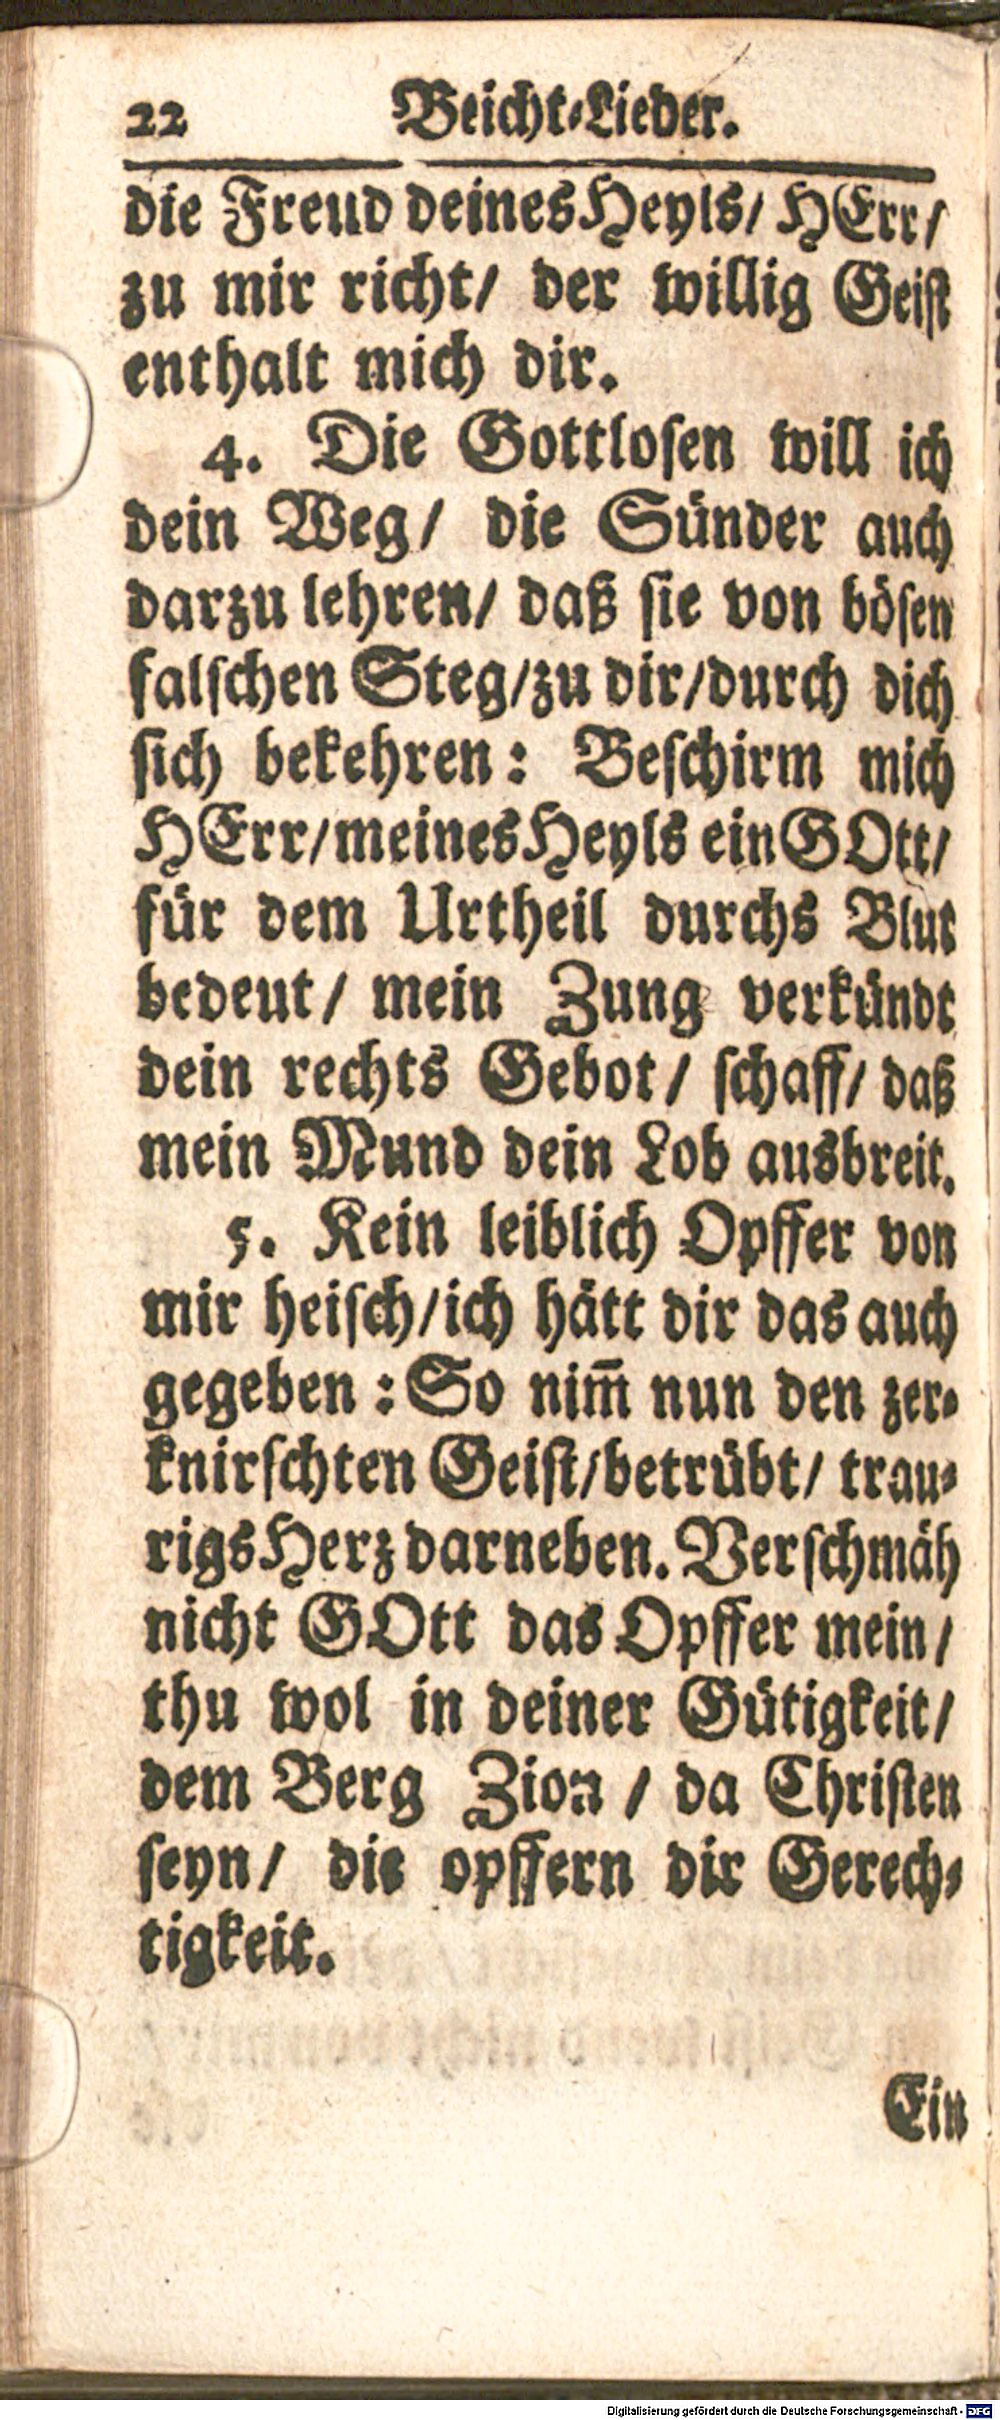 22 Beicht-Lieder.
die Freud deines Heyls/ HErr/
zu mir richt/ der willig Geist
enthalt mich dir.
4. Die Gottlosen will ich
dein Weg/ die Sünder auch
darzu lehren/ daß sie von bösen
falschen Steg/zu dir/durch dich
sich bekehren: Beschirm mich
HErr/meines Heyls ein GOtt/
für dem Urtheil durchs Blut
bedeut/ mein Zung verkündt
dein rechts Gebot/ schaff/ daß
mein Mund dein Lob ausbreit.
5. Kein leiblich Opffer von
mir heisch/ich hätt dir das auch
gegeben: So nim̄ nun den zer-
knirschten Geist/betrübt/ trau-
rigs Herz darneben. Verschmäh
nicht GOtt das Opffer mein/
thu wol in deiner Gütigkeit/
dem Berg Zion / da Christen
seyn/ die opffern dir Gerech-
tigkeit.
Ein
Digitalisierung gefördert durch die Deutsche Forschungsgemeinschaft - DFG